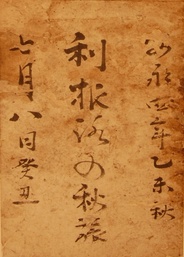 安永四年乙未秋
利根路の秋旅
七月八日癸丑